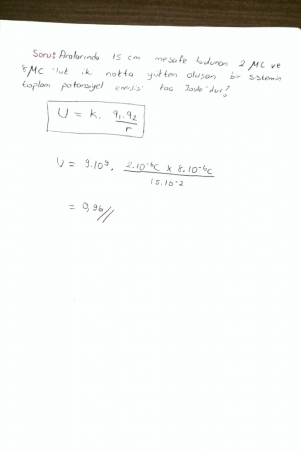 Soru: Aralarında 15 cm mesafe bulunan 2 MC ve
8MC 'luk iki nokta yükten oluşan bir sistemin
toplam potansiyel enerjisi kaç Joule'dur?
U = k. q1.q2 / r
U = 9.10⁹. 2.10⁻⁶C x 8.10⁻⁶C / 15.10⁻²
= 0,96//